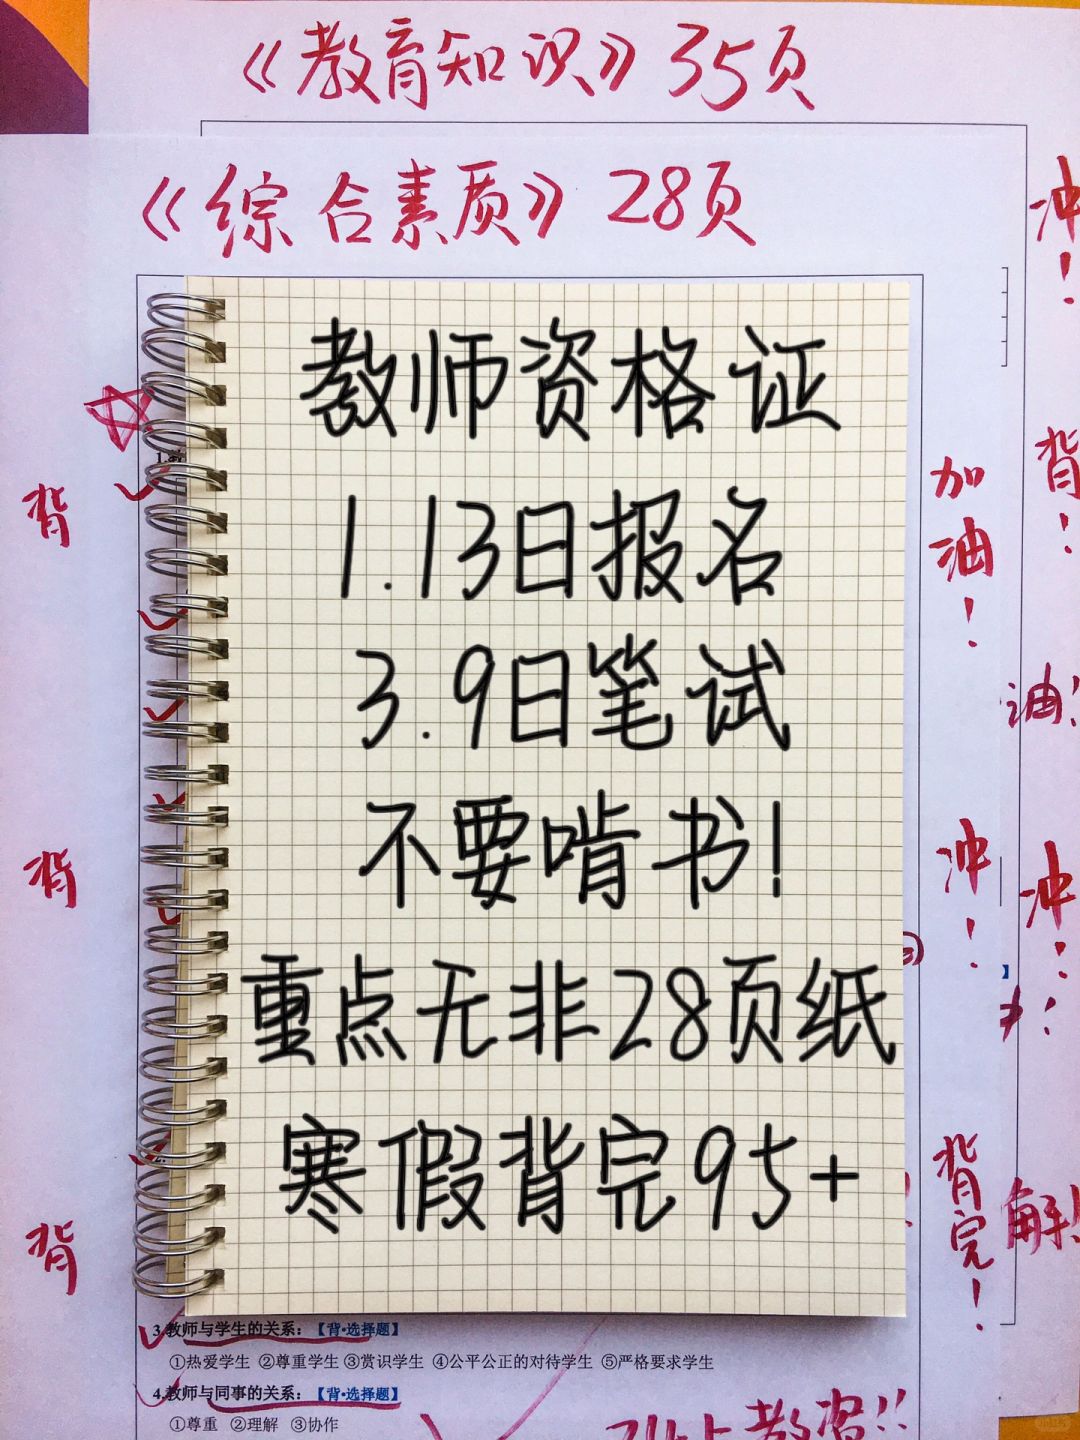 《教育知识》35页
《综合素质》28页
教师资格证
1.13日报名
3.9日笔试
不要啃书!
重点无非28页纸
寒假背完95+
背
背
背
加油!
冲!
背完!
冲!
背!
油!
冲!
解!
3.教师与学生的关系:【背·选择题】
①热爱学生 ②尊重学生 ③赏识学生 ④公平公正的对待学生 ⑤严格要求学生
4.教师与同事的关系:【背·选择题】
①尊重 ②理解 ③协作